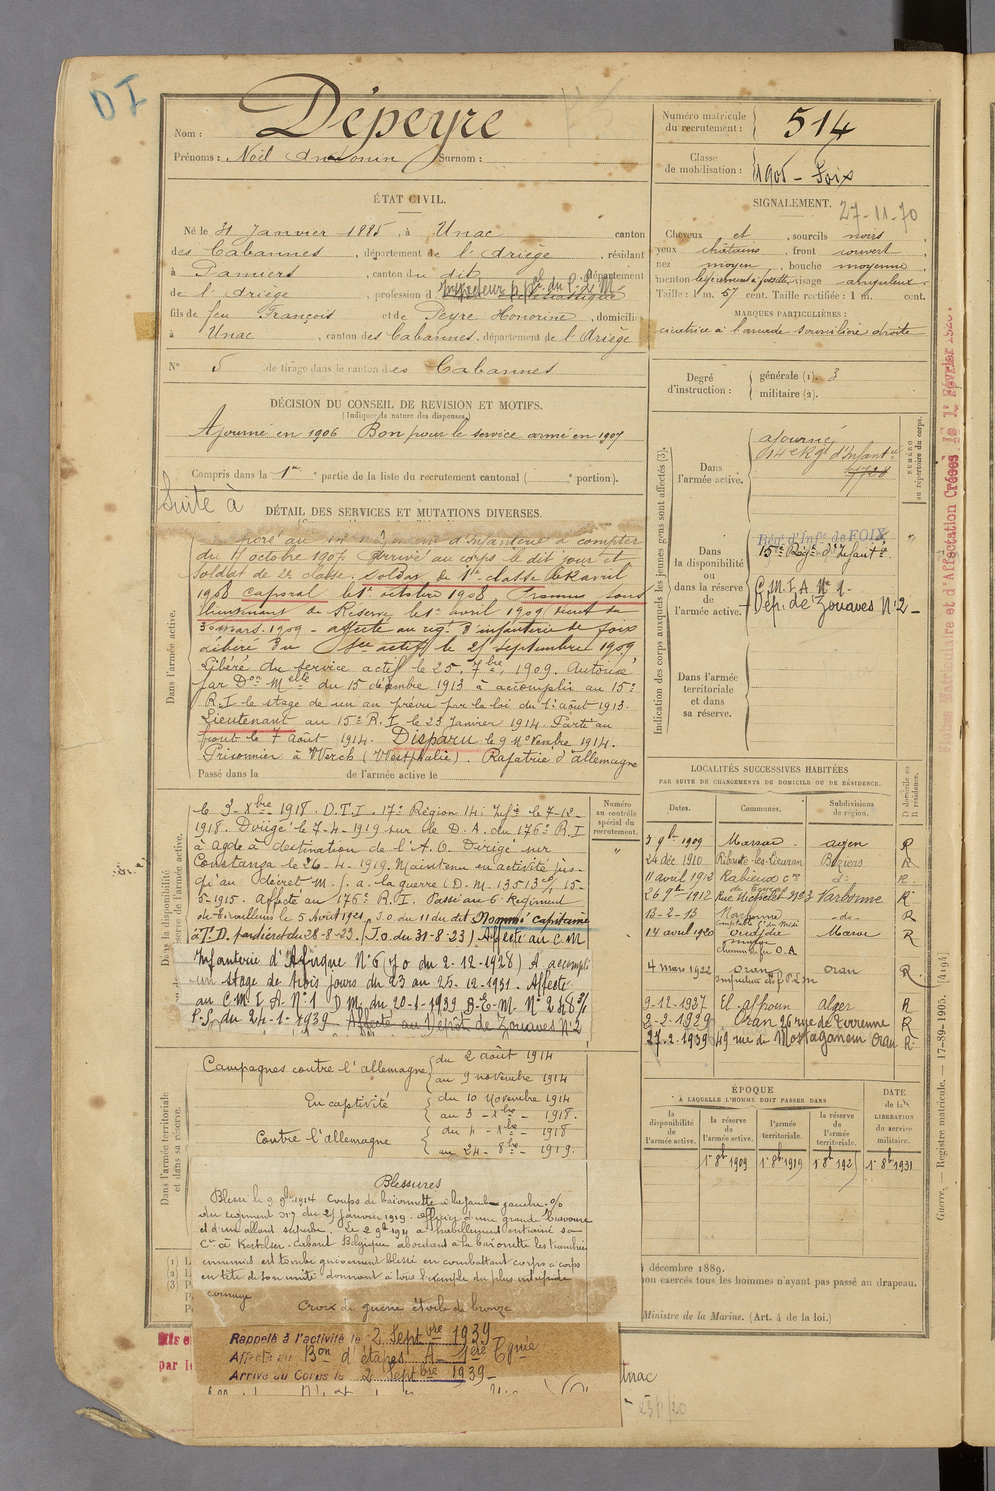 DI
Nom : Dépeyre
Prénoms : Noël Antonin Surnom :
Numéro matricule
du recrutement : 514
Classe
de mobilisation : 1905 - Foix
ÉTAT CIVIL.
Né le 31 Janvier 1885, à Unac canton
des Cabannes, département de l'Ariège, résidant
à Pamiers, canton du dit, département
de l'Ariège, profession d
fils de feu François et de Peyre Honorine, domiciliés
à Unac, canton des Cabannes, département de l'Ariège
N° 5 de tirage dans le canton des Cabannes
SIGNALEMENT. 27-11-70
Cheveux et, sourcils noirs,
yeux châtains, front couvert,
nez moyen, bouche moyenne,
menton légèrement à fossette, visage anguleux
Taille : 1 m. 57 cent. Taille rectifiée : 1 m. cent.
MARQUES PARTICULIÈRES :
cicatrice à l'arcade sourcilière droite
Degré
d'instruction :
générale (1). 3
militaire (2).
DÉCISION DU CONSEIL DE REVISION ET MOTIFS.
(Indiquer la nature des dispenses.)
Ajourné en 1906 Bon pour le service armé en 1907
Compris dans la 1re partie de la liste du recrutement cantonal ( portion).
Suite à
DÉTAIL DES SERVICES ET MUTATIONS DIVERSES.
Dans l'armée active.
d'Infanterie à compter
du 7 octobre 1907. Arrivé au corps le dit jour et
soldat de 2e classe. Soldat de 1re classe le avril
1908 Caporal le 1er octobre 1908 Promu sous
lieutenant de Réserve le 1er avril 1909
30 mars 1909 - affecté au rég. d'infanterie de Foix
Libéré du service actif le 25 septembre 1909
Libéré du service actif le 25 7bre 1909. Autorisé
par Don Melle du 15 décembre 1913 à accomplir au 15e
R.I. le stage de un an prévu par la loi du 1er août 1913.
Lieutenant au 15e R.I. le 23 Janvier 1914. Parti au
front le 7 Août 1914. Disparu le 9 Novembre 1914.
Prisonnier à Werch (Westphalie). Rapatrié d'allemagne
Passé dans la de l'armée active le
Dans la disponibilité
Numéro
au contrôle
spécial du
recrutement.
le 3 Xbre 1918. D.T.I. 17e Région 14e Infie le 7-12-
1918. Dirigé le 7-4-1919 sur le D.A. du 176e R.I
à Agde à destination de l'A.O. Dirigé sur
Constanza le 26-4-1919. Maintenu en activité jus-
qu'au décret M. J. a. la guerre (D.M. 13513 15-
5-1915. Affecté au 176e R.I. Passé au 6 Régiment
de Tirailleurs le 5 Août 1921 J.O. du 11 du dit Nommé Capitaine
à T.D. par décret du 28-8-23. (J.o. du 31-8-23) Affecté au C.M
Infanterie d'Afrique N°6 (Jo du 2-12-1928) A accompli
un stage de trois jours du 23 au 25-12-1931. Affecté
au C.M.I.A. N°1 D.M. du 20-1-1939 B-E-M. N° 248 3/
P.S. du 24-1-1939 Affecté au Dépôt de Zouaves N°2
Dans l'armée territoriale
et dans sa réserve.
Campagnes contre l'allemagne du 2 août 1914
au 9 novembre 1914
En captivité du 10 Novembre 1914
au 3 - Xbre - 1918.
Contre l'allemagne du 4 - Xbre - 1918
au 24 - 8bre - 1919.
Blessures
Blessé le 9 9bre 1914 Coups de baïonnette à la jambe gauche. O/
du régiment 317 du 25 janvier 1919. Officier d'une grande bravoure
et d'un allant superbe. Le 2 9bre 1914 a habillement entraîné sa
Cie à Kortelker. Cabaret Belgique abordant à la baïonnette les tranchées
ennemies est tombé grièvement blessé en combattant corps à corps
en tête de son unité donnant à tous l'exemple du plus intrépide
courage
Croix de guerre étoile de bronze
Rappelé à l'activité le 2 Septbre 1939
Affecté au Bon d'étapes A 1ère Cgnie
Arrivé au Corps le 2 Septbre 1939
Indication des corps auxquels les jeunes gens sont affectés (3).
NUMÉRO
au répertoire du corps.
Dans
l'armée active.
ajourné
14e Rgt d'Infantie
7728
Dans
la disponibilité
ou
dans la réserve
de
l'armée active.
Régt d'Infie de FOIX
15e Régt d'Infantie
C.M.I.A N° 1-
+ Dép. de Zouaves N°2 -
Dans l'armée
territoriale
et dans
sa réserve.
LOCALITÉS SUCCESSIVES HABITÉES
PAR SUITE DE CHANGEMENTS DE DOMICILE OU DE RÉSIDENCE.
Dates. Communes. Subdivisions de région. D domicile ou R résidence.
3 9bre 1909 Massac agen R
24 déc. 1910 Ribaute-les-Lieuran Béziers R
11 avril 1912 Rabieux cne do R.
26 9bre 1912 Rue Michelet N°3 Narbonne R
13-2-13 Narbonne -do- R
14 avril 1920 Oudjda Maroc R
chemin fer O.A
4 mars 1922 Oran Oran R
9-12-1937 El-affroun alger R
2-2-1929 Oran 26 rue de Turenne R
27.2.1939 49 rue de Mostaganem Oran R
ÉPOQUE
À LAQUELLE L'HOMME DOIT PASSER DANS
DATE
de la
LIBÉRATION
du service
militaire.
la disponibilité de l'armée active.
la réserve de l'armée active.
l'armée territoriale.
la réserve de l'armée territoriale.
1er 8bre 1909 1er 8bre 1919 1er 8bre 1927 1er 8bre 1931
décembre 1889.
non exercés tous les hommes n'ayant pas passé au drapeau.
Ministre de la Marine. (Art. 4 de la loi.)
Unac
Guerre. — Registre matricule. — 17-89-1905. [4194]
Fiches Matriculaire et d'Affectation Créées le 1er Février 192